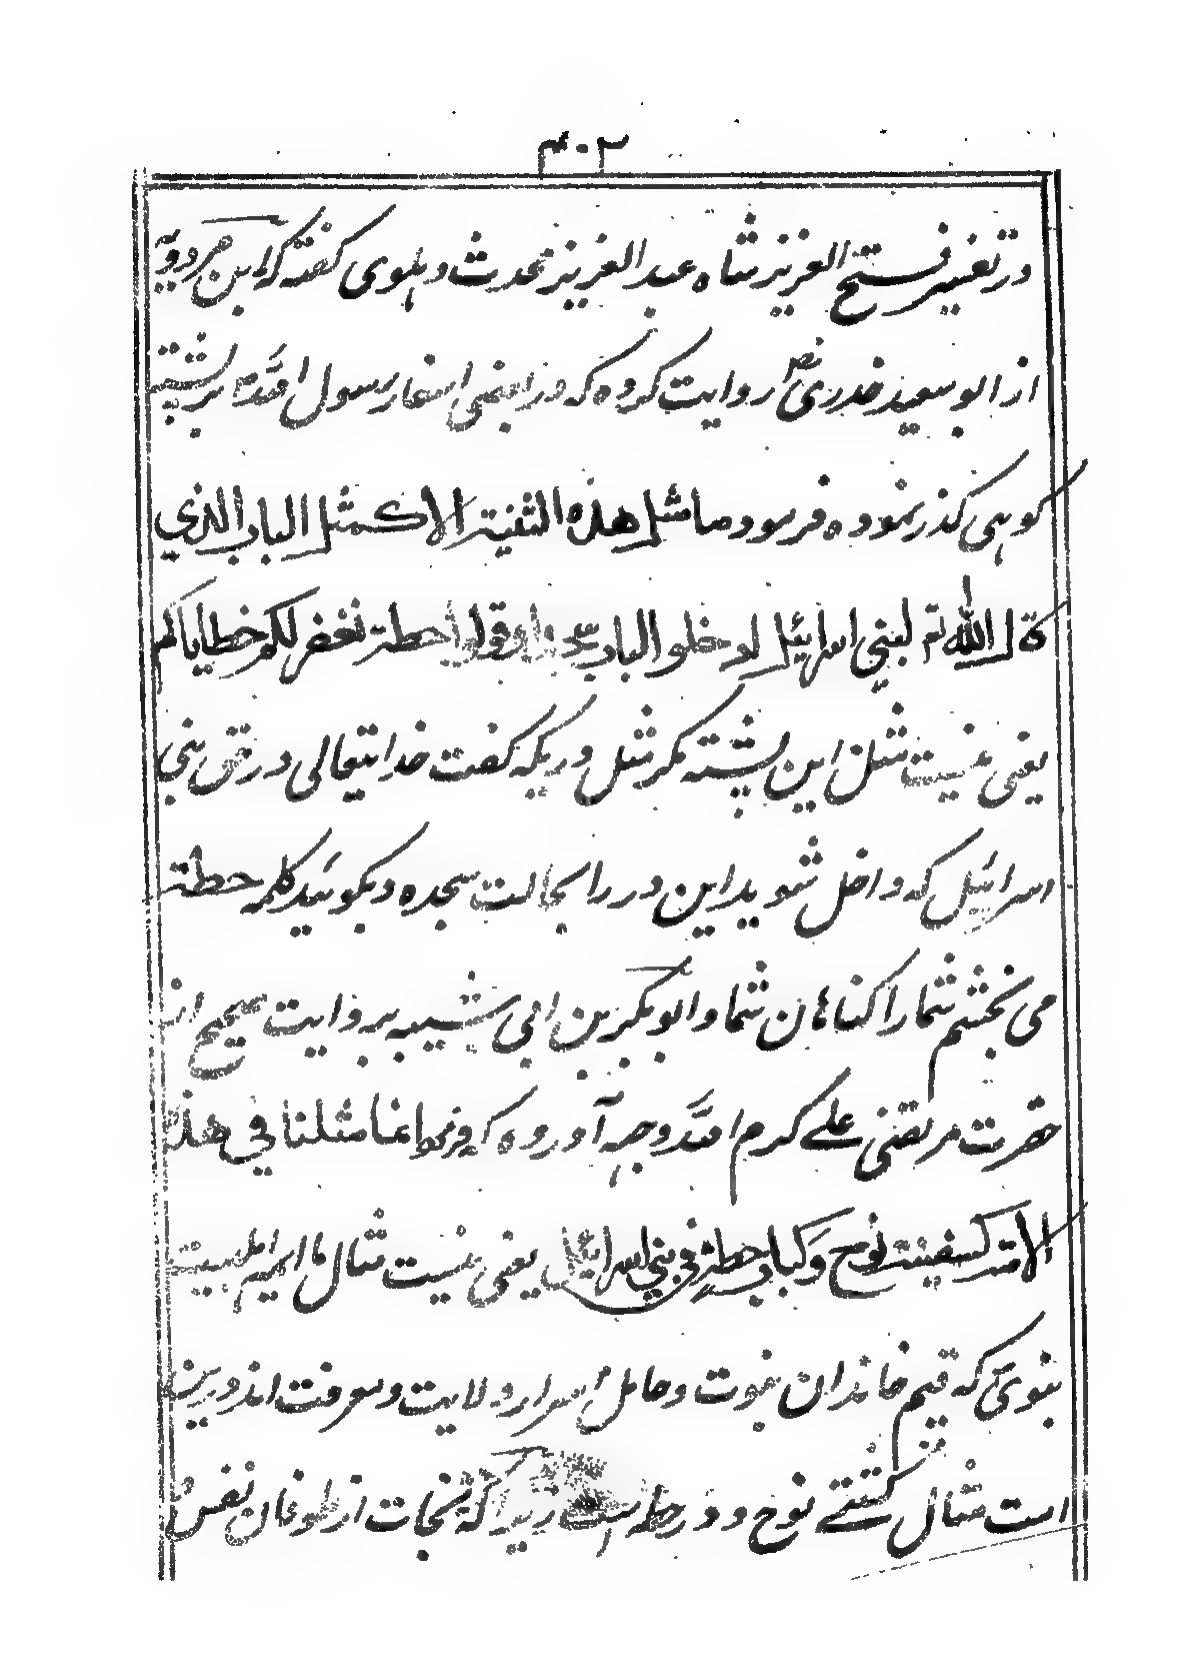 ۳۰۲
در تفسیر فتح العزیز شاه عبد العزیز محدث دہلوی گفته که ابن مردویہ
از ابو سعید خدری رض روایت کرده که در بعضی اسفار رسول الله بر پشتہ
کوہی گذر نموده فرمود ما مثل هذه الثنیة الا کمثل الباب الذي
قال الله تع لبني اسرائیل ادخلوا الباب سجدا وقولوا حطة نغفر لکم خطایاکم
یعنی نیست مثل این پشتہ مگر مثل دریکہ گفت خدایتعالی در حق بنی
اسرائیل که داخل شوید این در را بحالت سجده و بگوئید کلمہ حطة
می بخشم شما را گناہان شما و ابو بکر بن ابی شیبہ بروایت صحیح از
حضرت مرتضی علے کرم الله وجہہ آورده که فرمود انما مثلنا في هذه
الامة کسفینة نوح وکباب حطة في بني اسرائیل یعنی نیست مثال ما اہلبیت
نبوی که قیم خاندان نبوت و حامل اسرار ولایت و معرفت اند درین
است مثال کشتے نوح و در حطہ است زیرا که نجات از طوفان نفس